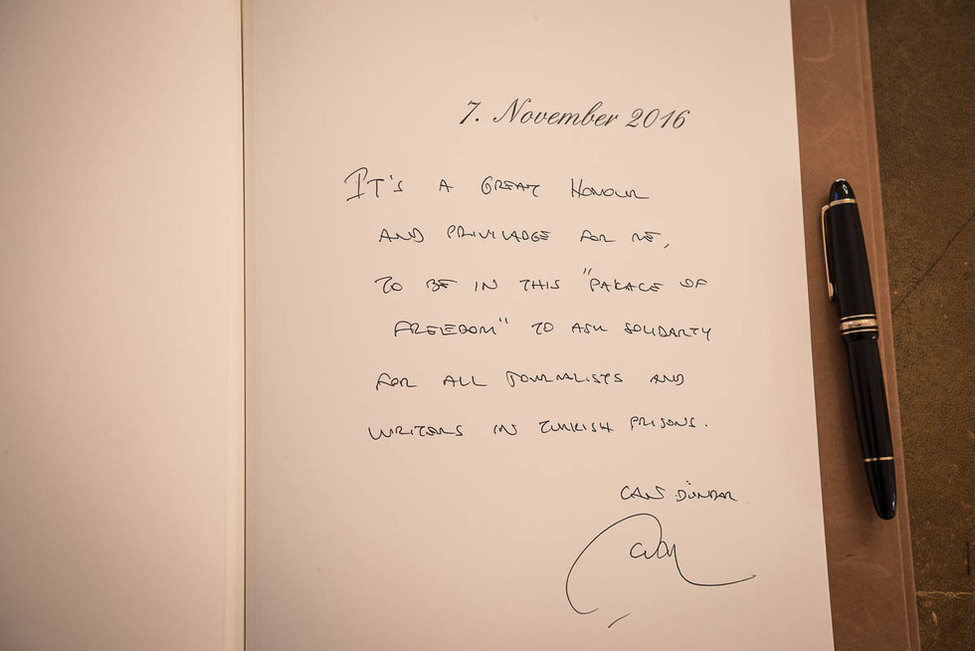 7. November 2016
IT'S A GREAT HONOUR
AND PRIVILADGE FOR ME,
TO BE IN THIS "PALACE OF
FREEDOM" TO ASK SOLIDARTY
FOR ALL JOURNALISTS AND
WRITERS IN TURKISH PRISONS.
CAN DÜNDAR